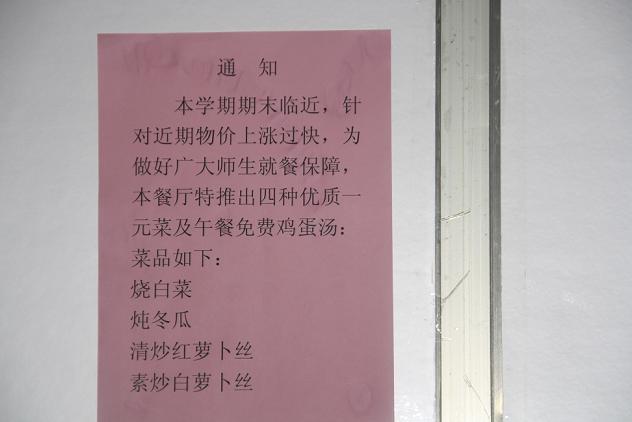 通 知
本学期期末临近，针
对近期物价上涨过快，为
做好广大师生就餐保障，
本餐厅特推出四种优质一
元菜及午餐免费鸡蛋汤：
菜品如下：
烧白菜
炖冬瓜
清炒红萝卜丝
素炒白萝卜丝